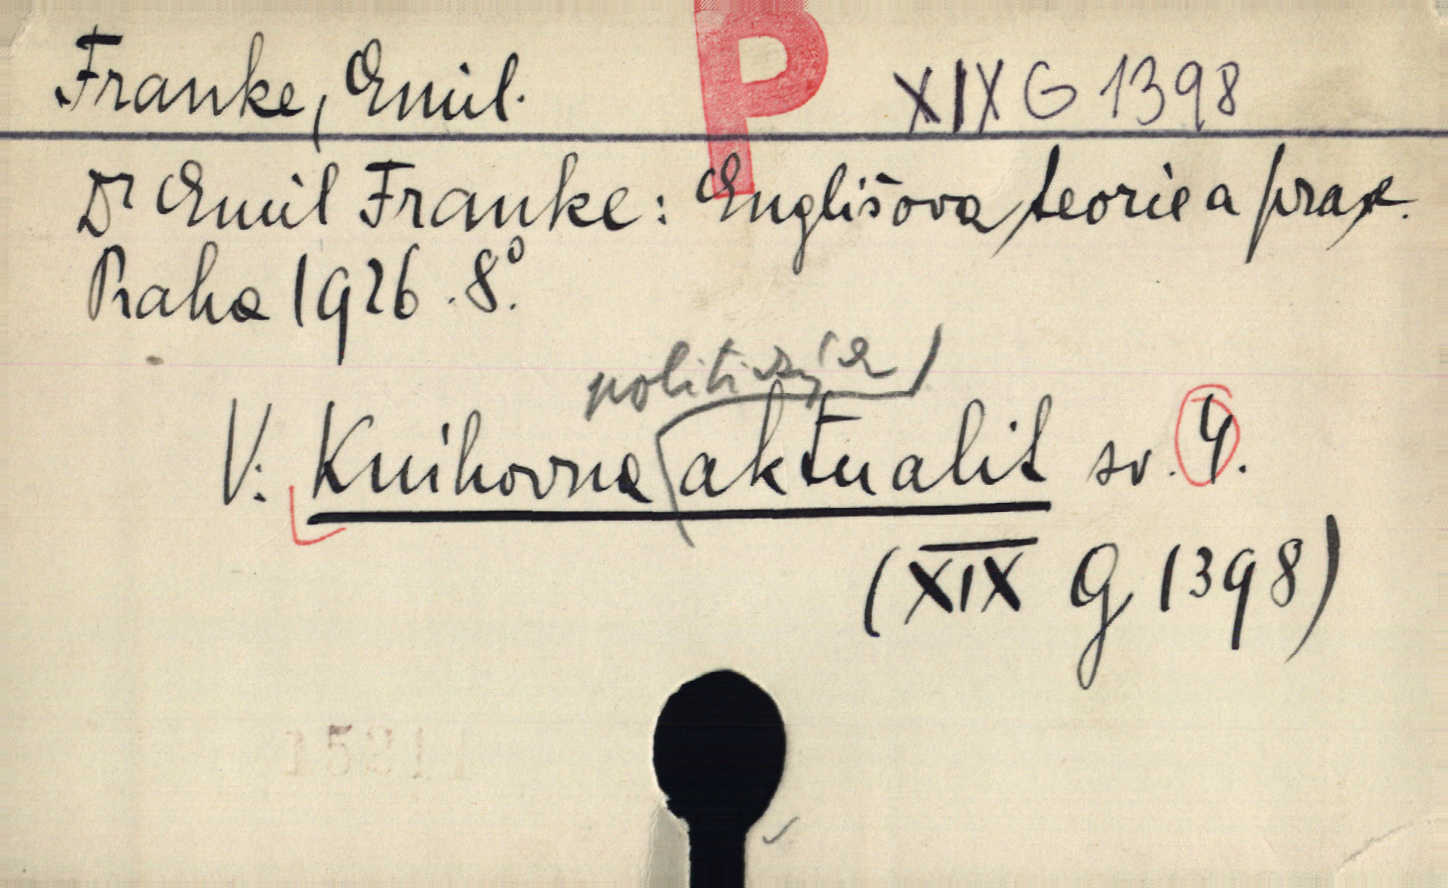 Franke, Emil.
P
XIX G 1398
Dr Emil Franke: Englišova teorie a praxe.
Praha 1926. 8°.
politických
V: Knihovna aktualit sv. 4.
(XIX G 1398)